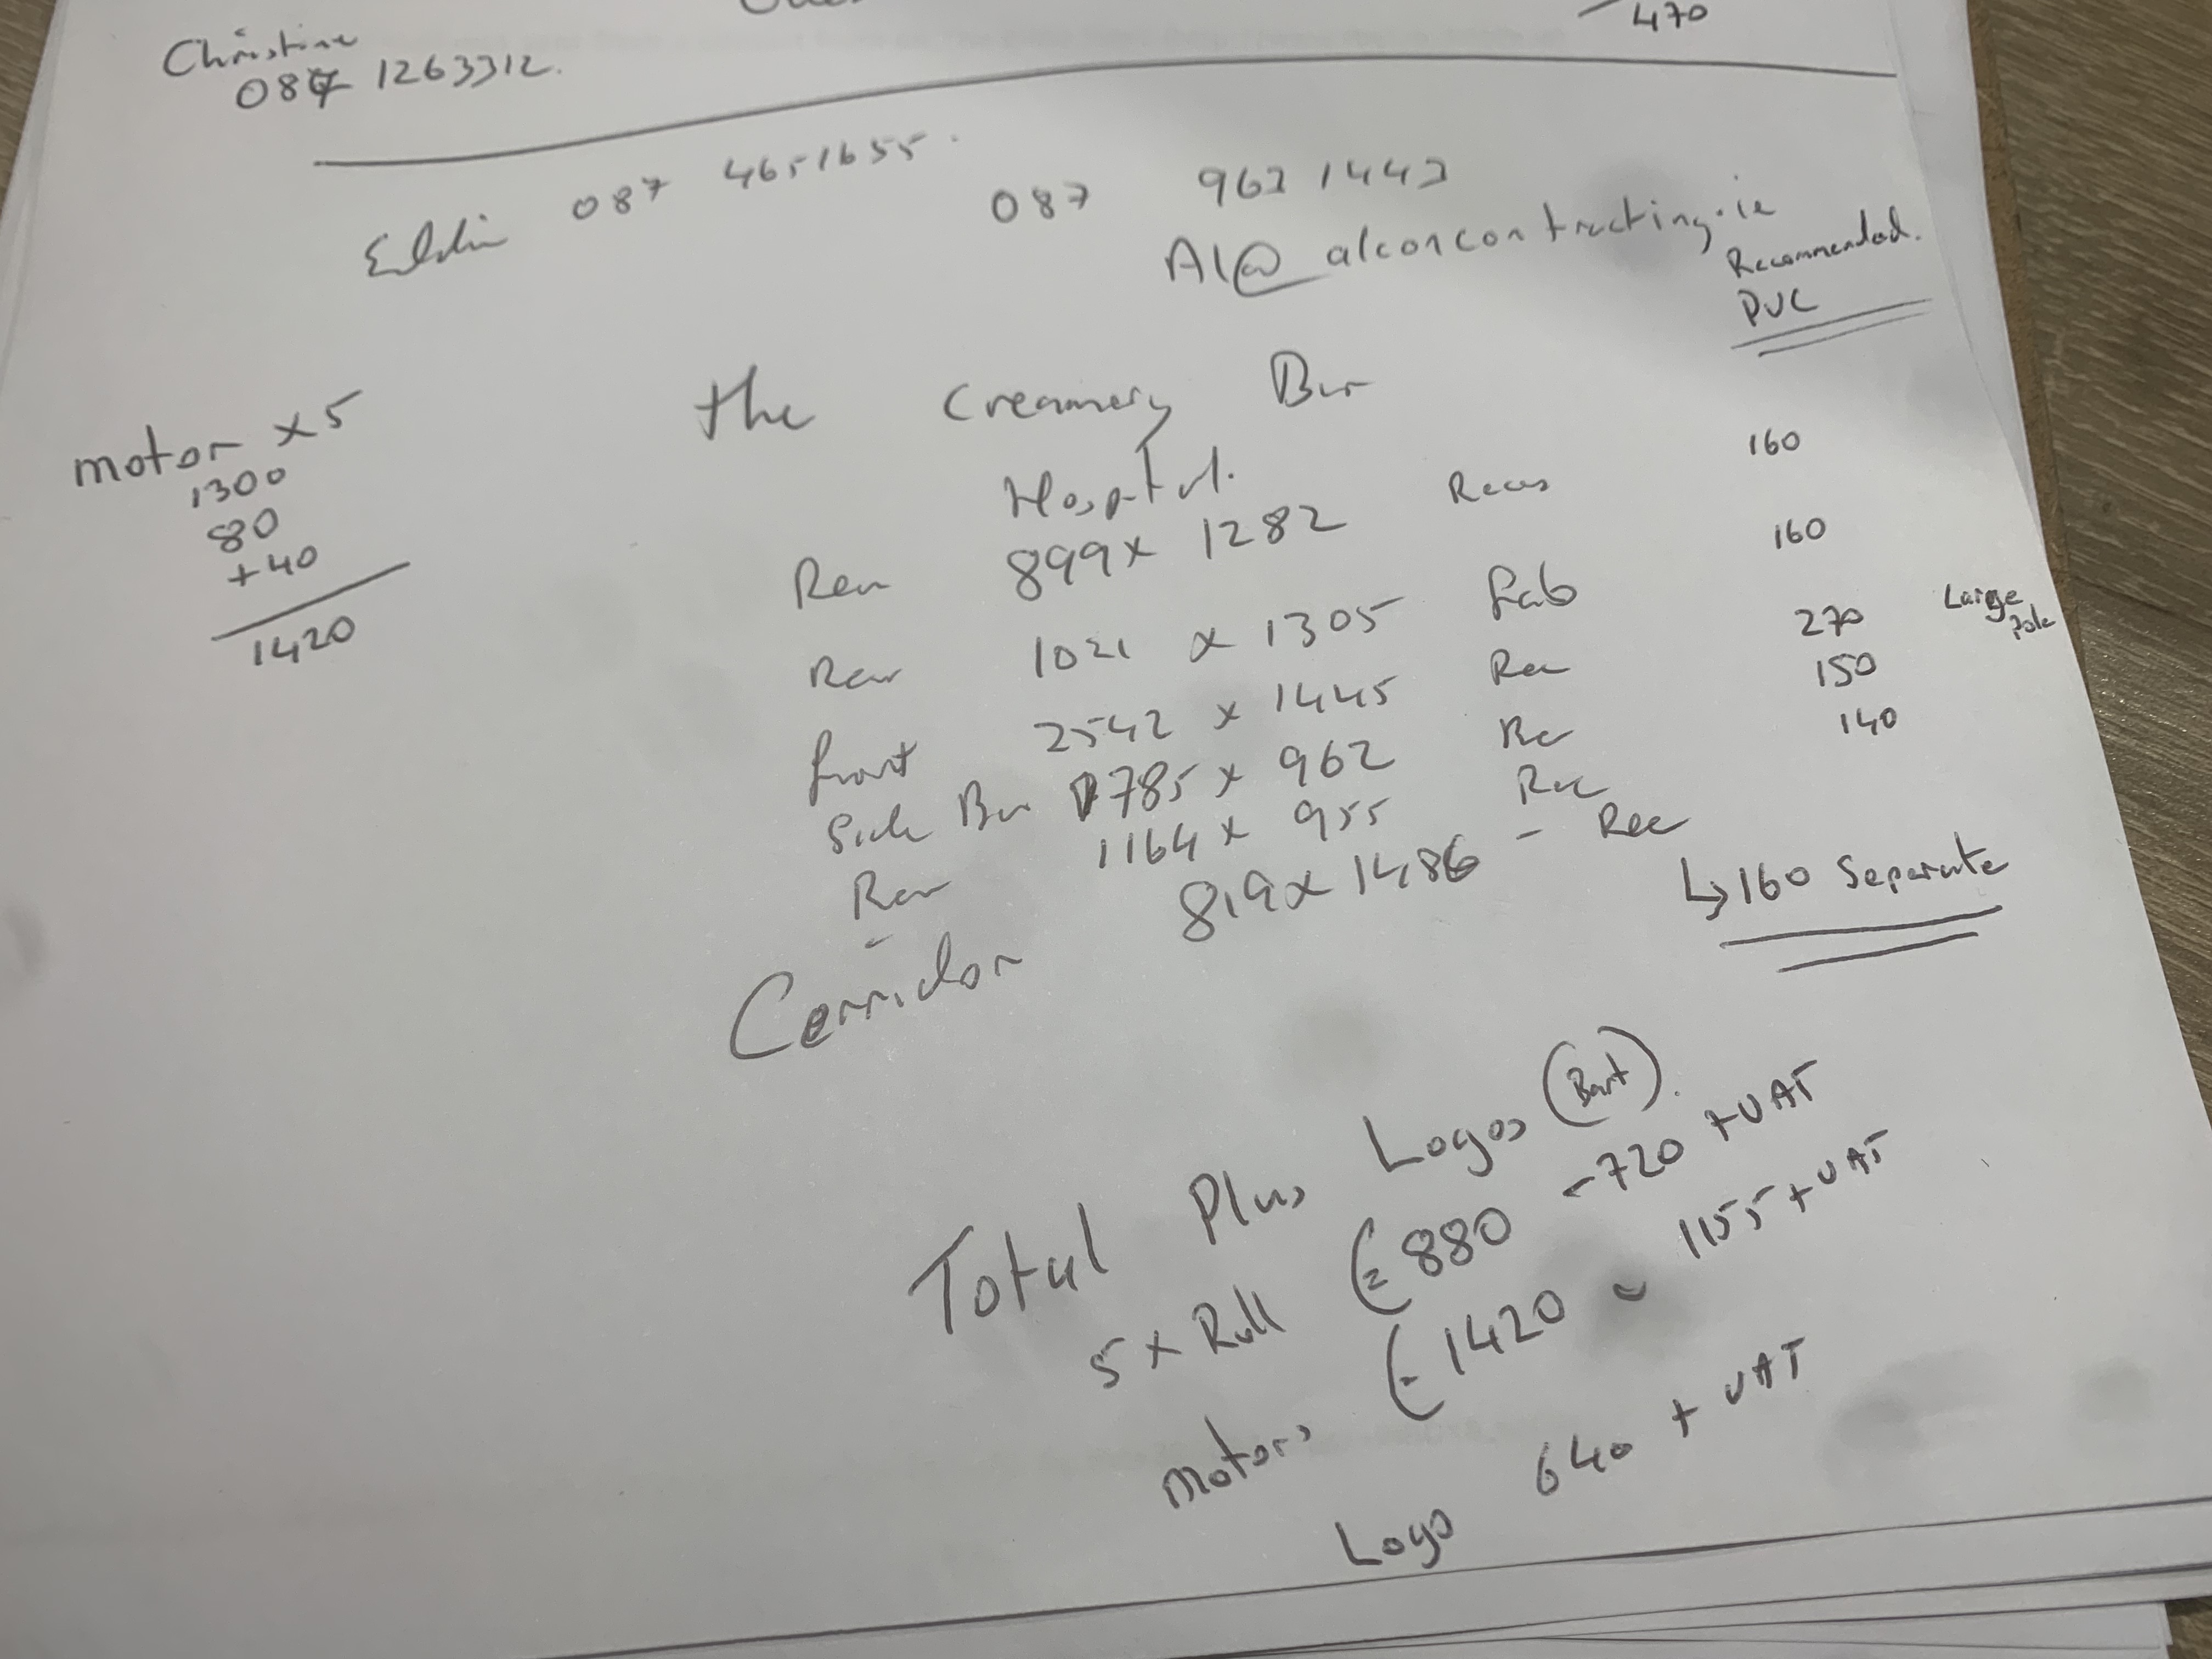 470
Christine
087 1263312.
087 4651655.
087 963 1443
Al@alconcontracting.ie
Recommended.
PVC
motor x5
1300
80
+40
1420
the Creamery Bar
Hospital.
Rear 899 x 1282 Recess 160
Rear 1021 x 1305 fab 160
front 2542 x 1445 Rec 270 Large Pole
Side Bar 785 x 962 Rec 150
Rear 1164 x 955 Rec 140
Corridor 819 x 1486 - Rec
↳ 160 Separate
Total Plus Logos (Bart).
5 x Roll € 880 - 720 + VAT
motors € 1420 - 1155 + VAT
Logo 640 + VAT